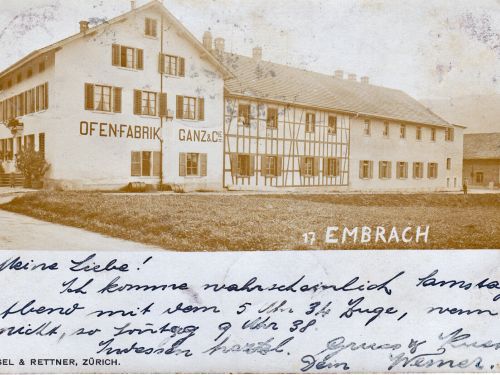 OFEN-FABRIK GANZ & CIE
17 EMBRACH
Meine Liebe!
Ich komme wahrscheinlich Samstag
Abend mit dem 5 Uhr 34 Zuge, wenn
nicht, so Sonntag 9 Uhr 38.
Indessen herzl. Gruss & Kuss
Dein Werner.
SEL & RETTNER, ZÜRICH.